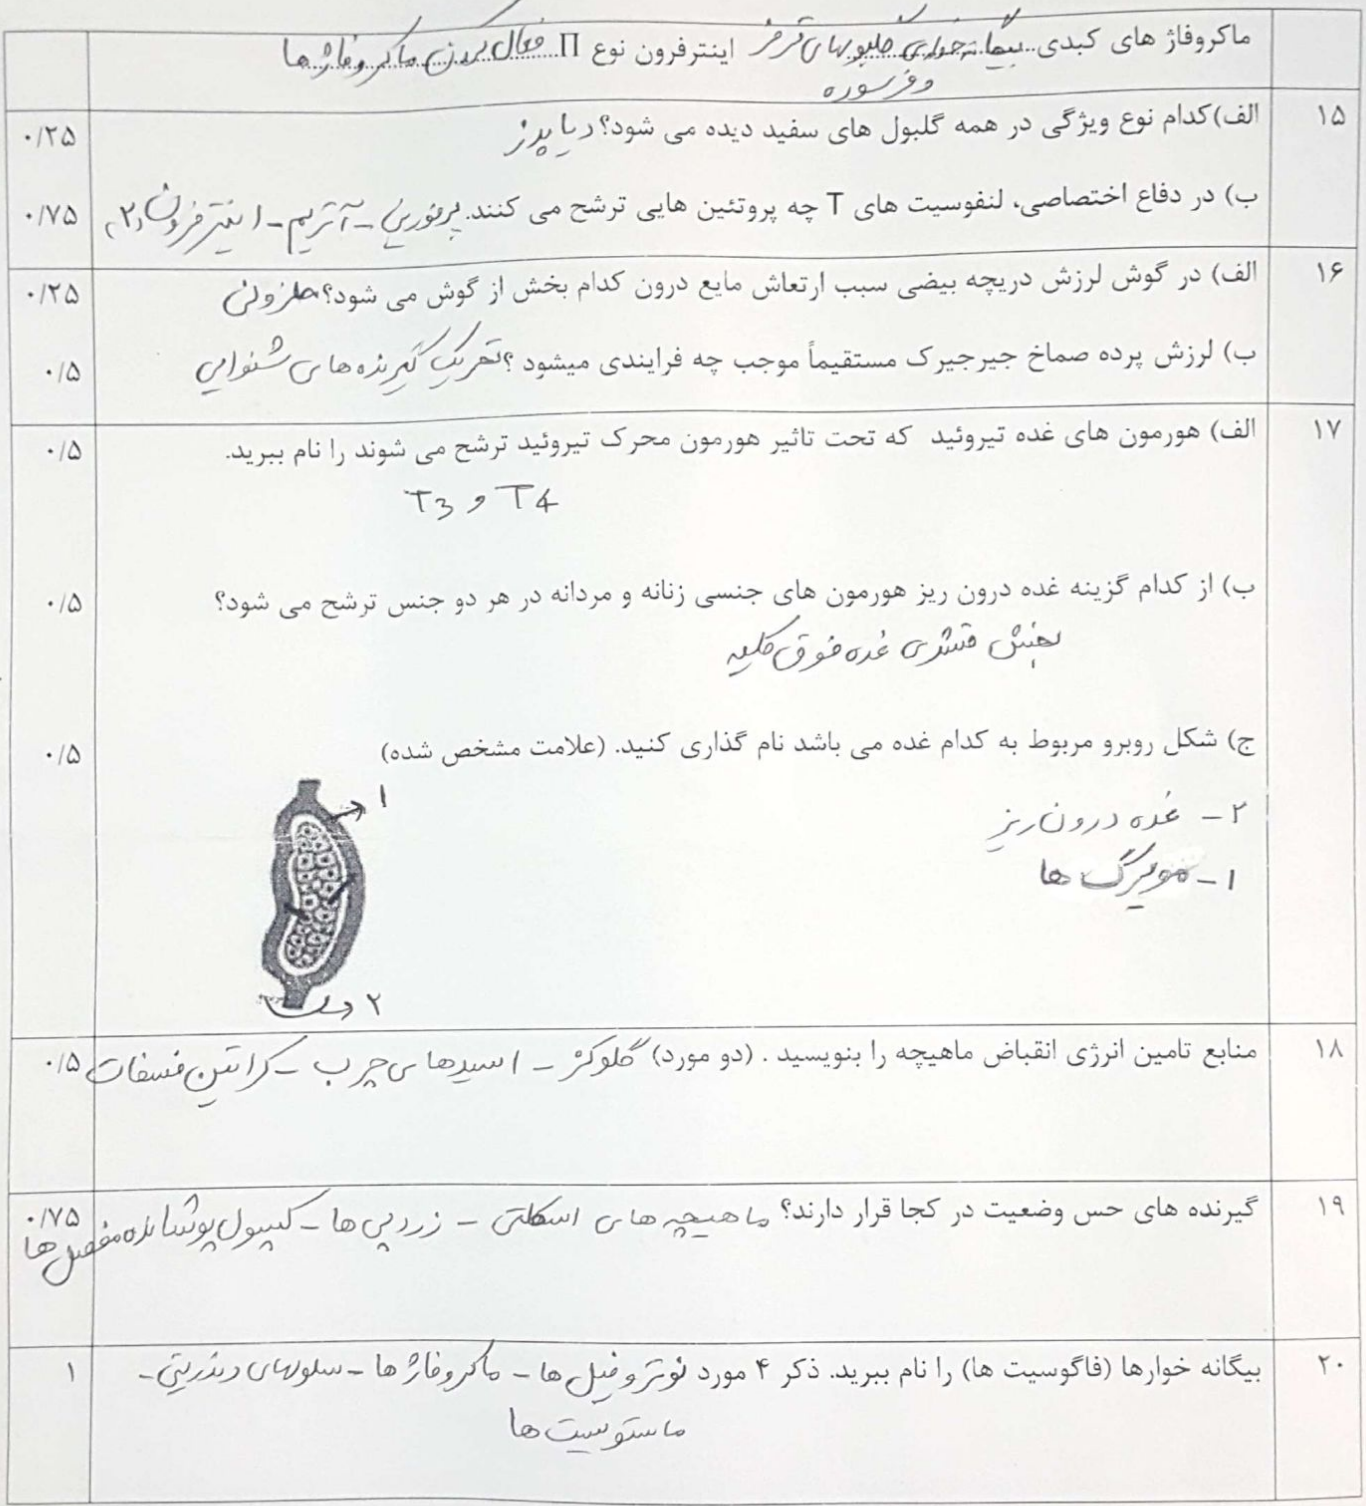 ماکروفاژ های کبدی بیگانه خواری گلبولهای قرمز اینترفرون نوع Π فعال کردن ماکروفاژ ها
و فرسوده
۱۵ الف)کدام نوع ویژگی در همه گلبول های سفید دیده می شود؟ دیاپدز ۰/۲۵
ب) در دفاع اختصاصی، لنفوسیت های T چه پروتئین هایی ترشح می کنند. پرفورین - آنزیم - اینترفرون ۱ و ۲ ۰/۷۵
۱۶ الف) در گوش لرزش دریچه بیضی سبب ارتعاش مایع درون کدام بخش از گوش می شود؟ حلزونی ۰/۲۵
ب) لرزش پرده صماخ جیرجیرک مستقیماً موجب چه فرایندی میشود ؟ تحریک گیرنده های شنوایی ۰/۵
۱۷ الف) هورمون های غده تیروئید که تحت تاثیر هورمون محرک تیروئید ترشح می شوند را نام ببرید. ۰/۵
T3 و T4
ب) از کدام گزینه غده درون ریز هورمون های جنسی زنانه و مردانه در هر دو جنس ترشح می شود؟ ۰/۵
بخش قشری غده فوق کلیه
ج) شکل روبرو مربوط به کدام غده می باشد نام گذاری کنید. (علامت مشخص شده) ۰/۵
۱
۲ - غده درون ریز
۱ - مویرگ ها
۲
۱۸ منابع تامین انرژی انقباض ماهیچه را بنویسید . (دو مورد) گلوکز - اسیدهای چرب - کراتین فسفات ۰/۵
۱۹ گیرنده های حس وضعیت در کجا قرار دارند؟ ماهیچه های اسکلتی - زردپی ها - کپسول پوشاننده مفصل ها ۰/۷۵
۲۰ بیگانه خوارها (فاگوسیت ها) را نام ببرید. ذکر ۴ مورد نوتروفیل ها - ماکروفاژ ها - سلولهای دندریتی - ۱
ماستوسیت ها